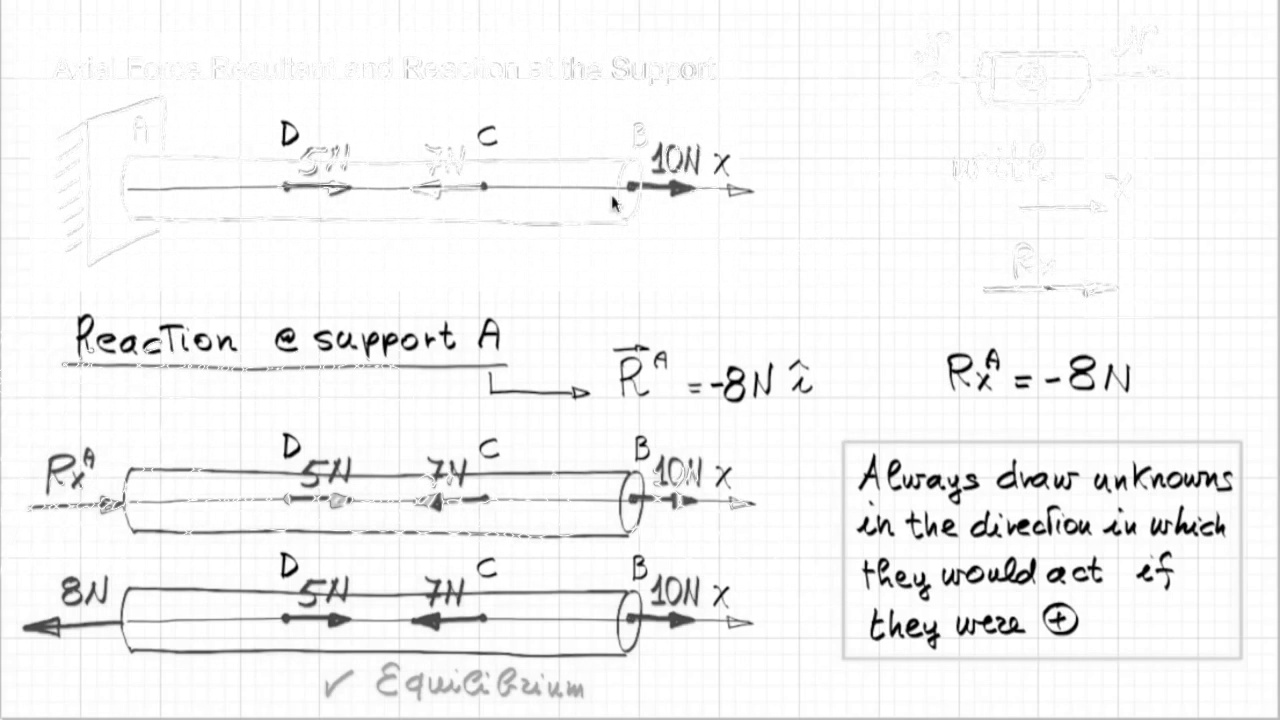 Axial Force Resultant and Reaction at the Support
N N
A D 5N 7N C B 10N x
write
x
Rx
Reaction @ support A
R^A = -8N î
Rx^A = -8N
Rx^A D 5N 7N C B 10N x
8N D 5N 7N C B 10N x
✓ Equilibrium
Always draw unknowns
in the direction in which
they would act if
they were ⊕